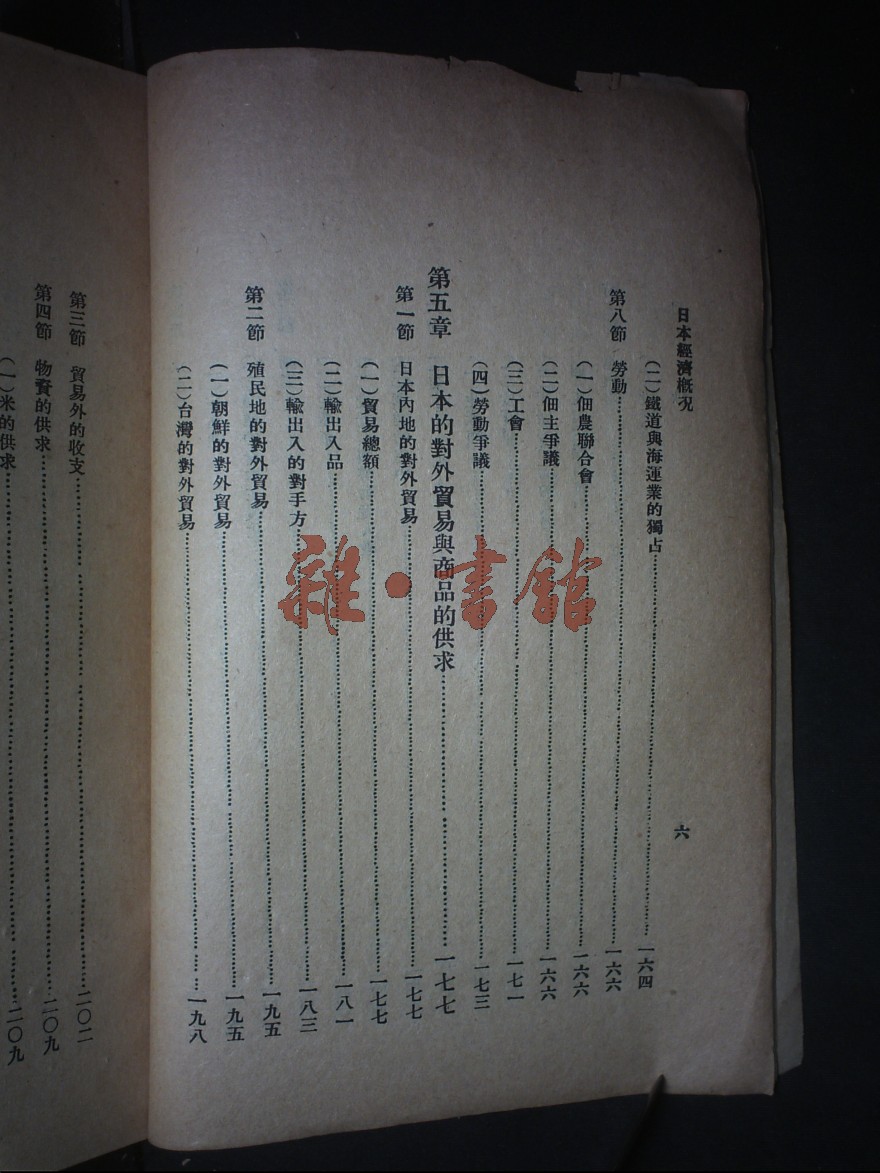 日本經濟概況
六
(二)鐵道與海運業的獨占……一六四
第八節 勞動……一六六
(一)佃農聯合會……一六六
(二)佃主爭議……一六六
(三)工會……一七一
(四)勞動爭議……一七三
第五章 日本的對外貿易與商品的供求……一七七
第一節 日本內地的對外貿易……一七七
(一)貿易總額……一七七
(二)輸出入品……一八一
(三)輸出入的對手方……一八三
第二節 殖民地的對外貿易……一九五
(一)朝鮮的對外貿易……一九五
(二)台灣的對外貿易……一九八
第三節 貿易外的收支……二〇二
第四節 物資的供求……二〇九
(一)米的供求……二〇九
雜·書館